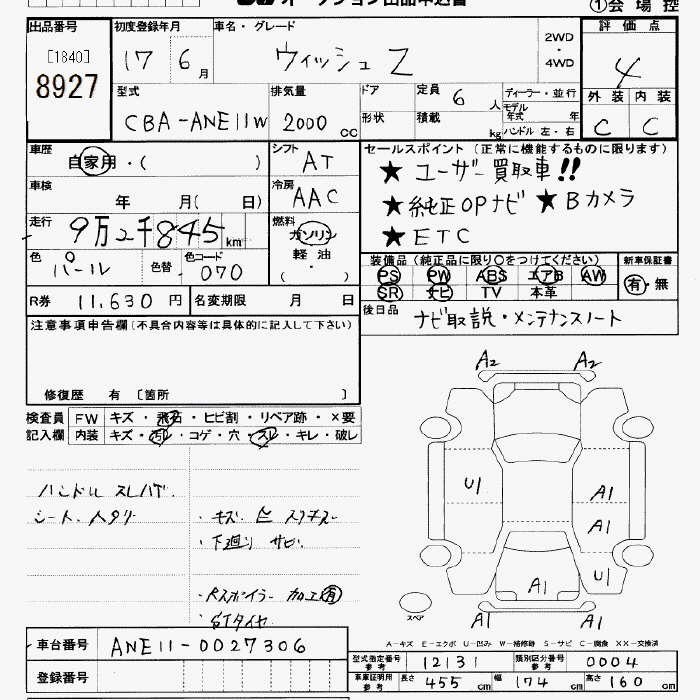 オークション出品申込書
①会場控
出品番号
[1840]
8927
初度登録年月
17 6月
車名・グレード
ウィッシュZ
2WD
・
4WD
評価点
4
外装 内装
C C
型式
CBA-ANE11W
排気量
2000 cc
ドア
形状
定員 6 人
積載 kg
ディーラー・並行
モデル年式 年
ハンドル 左・右
車歴
自家用・( )
シフト
AT
セールスポイント(正常に機能するものに限ります)
★ユーザー買取車!!
★純正OPナビ★Bカメラ
★ETC
車検 年 月( 日)
冷房
AAC
走行 9万2千845km
燃料
ガソリン
軽油
( ・ )
色 パール
色替
色コード 070
装備品(純正品に限り○をつけてください)
PS PW ABS エアB AW
SR ナビ TV 本革
新車保証書
有・無
R券 11,630円
名変期限 月 日
後日品 ナビ取説・メンテナンスノート
注意事項申告欄(不具合内容等は具体的に記入して下さい)
修復歴 有 〔箇所 〕
検査員記入欄
FW キズ・飛石・ヒビ割・リペア跡・×要
内装 キズ・汚レ・コゲ・穴・スレ・キレ・破レ
ハンドル スレハゲ.
シート.ヘタリ
・キズ.
・下廻り サビ.
・Rスポイラー 加工有
・STタイヤ.
A2 A2
U1
A1
A1
U1
A1
A1 A1
スペア
A-キズ E-エクボ U-凹み W-補修跡 S-サビ C-腐食 XX-交換済
車台番号 ANE11-0027306
登録番号
型式指定番号 参考 12131
類別区分番号 参考 0004
車庫証明用 参考 長さ 455 cm 幅 174 cm 高さ 160 cm